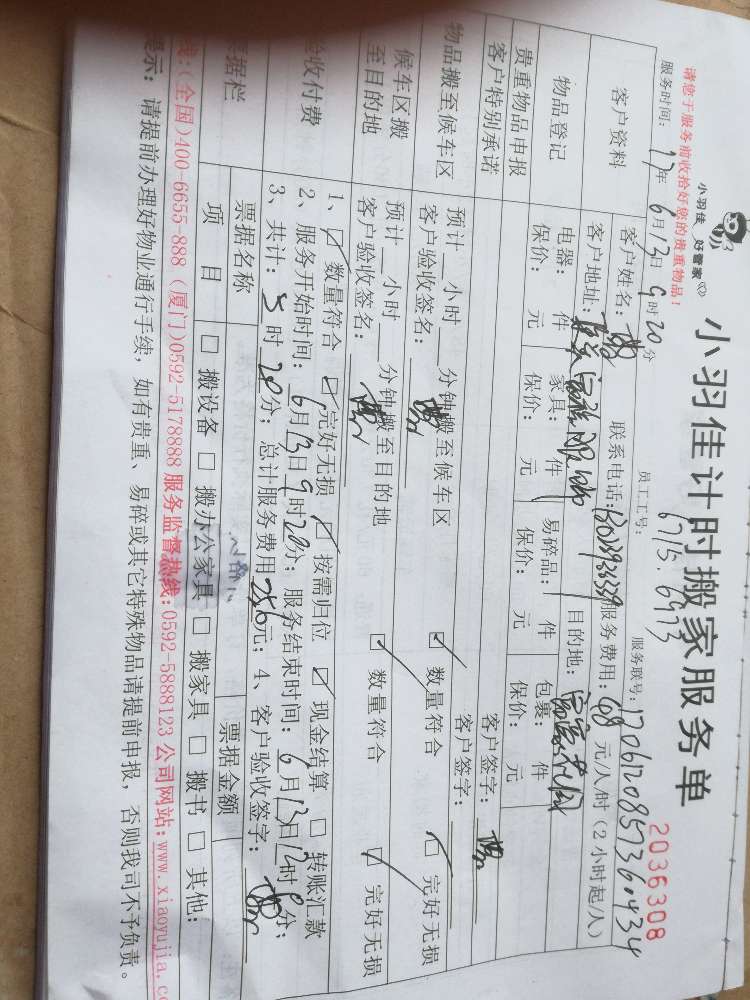 请您于服务前收拾好您的贵重物品!
小羽佳 好管家
小羽佳计时搬家服务单
2036308
员工工号: 6715. 6973
服务时间: 17年 6月13日 9时20分
服务联号:
客户资料
客户姓名:
联系电话:
服务费用: 68 元/人/时(2小时起/人)
客户地址:
目的地:
物品登记
电器: 件 家具: 件 易碎品: 件 包裹: 件
保价: 元 保价: 元 保价: 元 保价: 元
贵重物品申报
客户特别承诺
客户签字:
物品搬至候车区
预计 小时 分钟搬至候车区
客户签字:
客户验收签名:
数量符合 完好无损
候车区搬
至目的地
预计 小时 分钟搬至目的地
客户验收签名:
数量符合 完好无损
验收付费
1、 数量符合 完好无损 按需归位 现金结算 转账汇款
2、服务开始时间: 6月13日9时20分; 服务结束时间: 6月13日 时 分;
3、共计: 时20分; 总计服务费用 元; 4、客户验收签字:
票据栏
票据名称
票据金额
项 目
搬设备 搬办公家具 搬家具 搬书 其他:
线:(全国)400-6655-888 (厦门)0592-5178888 服务监督热线:0592-5888123 公司网站:www.xiaoyujia.c
提示: 请提前办理好物业通行手续, 如有贵重、易碎或其它特殊物品请提前申报, 否则我司不予负责。